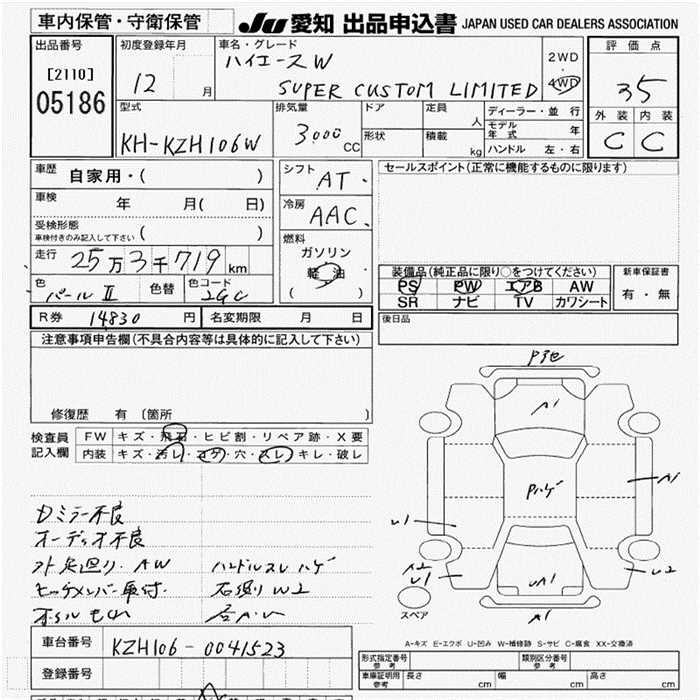 車内保管・守衛保管
JU 愛知 出品申込書 JAPAN USED CAR DEALERS ASSOCIATION
出品番号
[2110]
05186
初度登録年月
12 月
車名・グレード
ハイエースW
SUPER CUSTOM LIMITED
2WD
4WD
評価点
3.5
外装 内装
C C
型式
KH-KZH106W
排気量
3000 CC
ドア
形状
定員
人
積載
kg
ディーラー・並行
モデル年式 年
ハンドル 左・右
車歴
自家用・( )
車検
年 月( 日)
受検形態
車検付きのみ記入して下さい ( )
走行
25万3千719 km
色
パールⅡ
色替
色コード
2GC
シフト
AT
冷房
AAC
燃料
ガソリン
軽油
( )
セールスポイント(正常に機能するものに限ります)
装備品(純正品に限り○をつけてください)
PS PW エアB AW
SR ナビ TV カワシート
新車保証書
有・無
R券 14830 円
名変期限 月 日
後日品
注意事項申告欄(不具合内容等は具体的に記入して下さい)
修復歴 有 〔箇所 〕
検査員記入欄
FW キズ・飛石・ヒビ割・リペア跡・X要
内装 キズ・汚レ・コゲ・穴・スレ・キレ・破レ
Dミラー不良
オーディオ不良
外足廻り. AW
ハンドルスレ ハゲ
ヒッチメンバー取付.
石廻り W2
オイルもれ
A1
Pハゲ
A1
U1
A2
U1
UA1
U2
A1
スペア
A-キズ E-エクボ U-凹み W-補修跡 S-サビ C-腐食 XX-交換済
車台番号
KZH106-0041523
登録番号
形式指定番号
参考
類別区分番号
参考
車庫証明用
参考
長さ cm
幅 cm
高さ cm